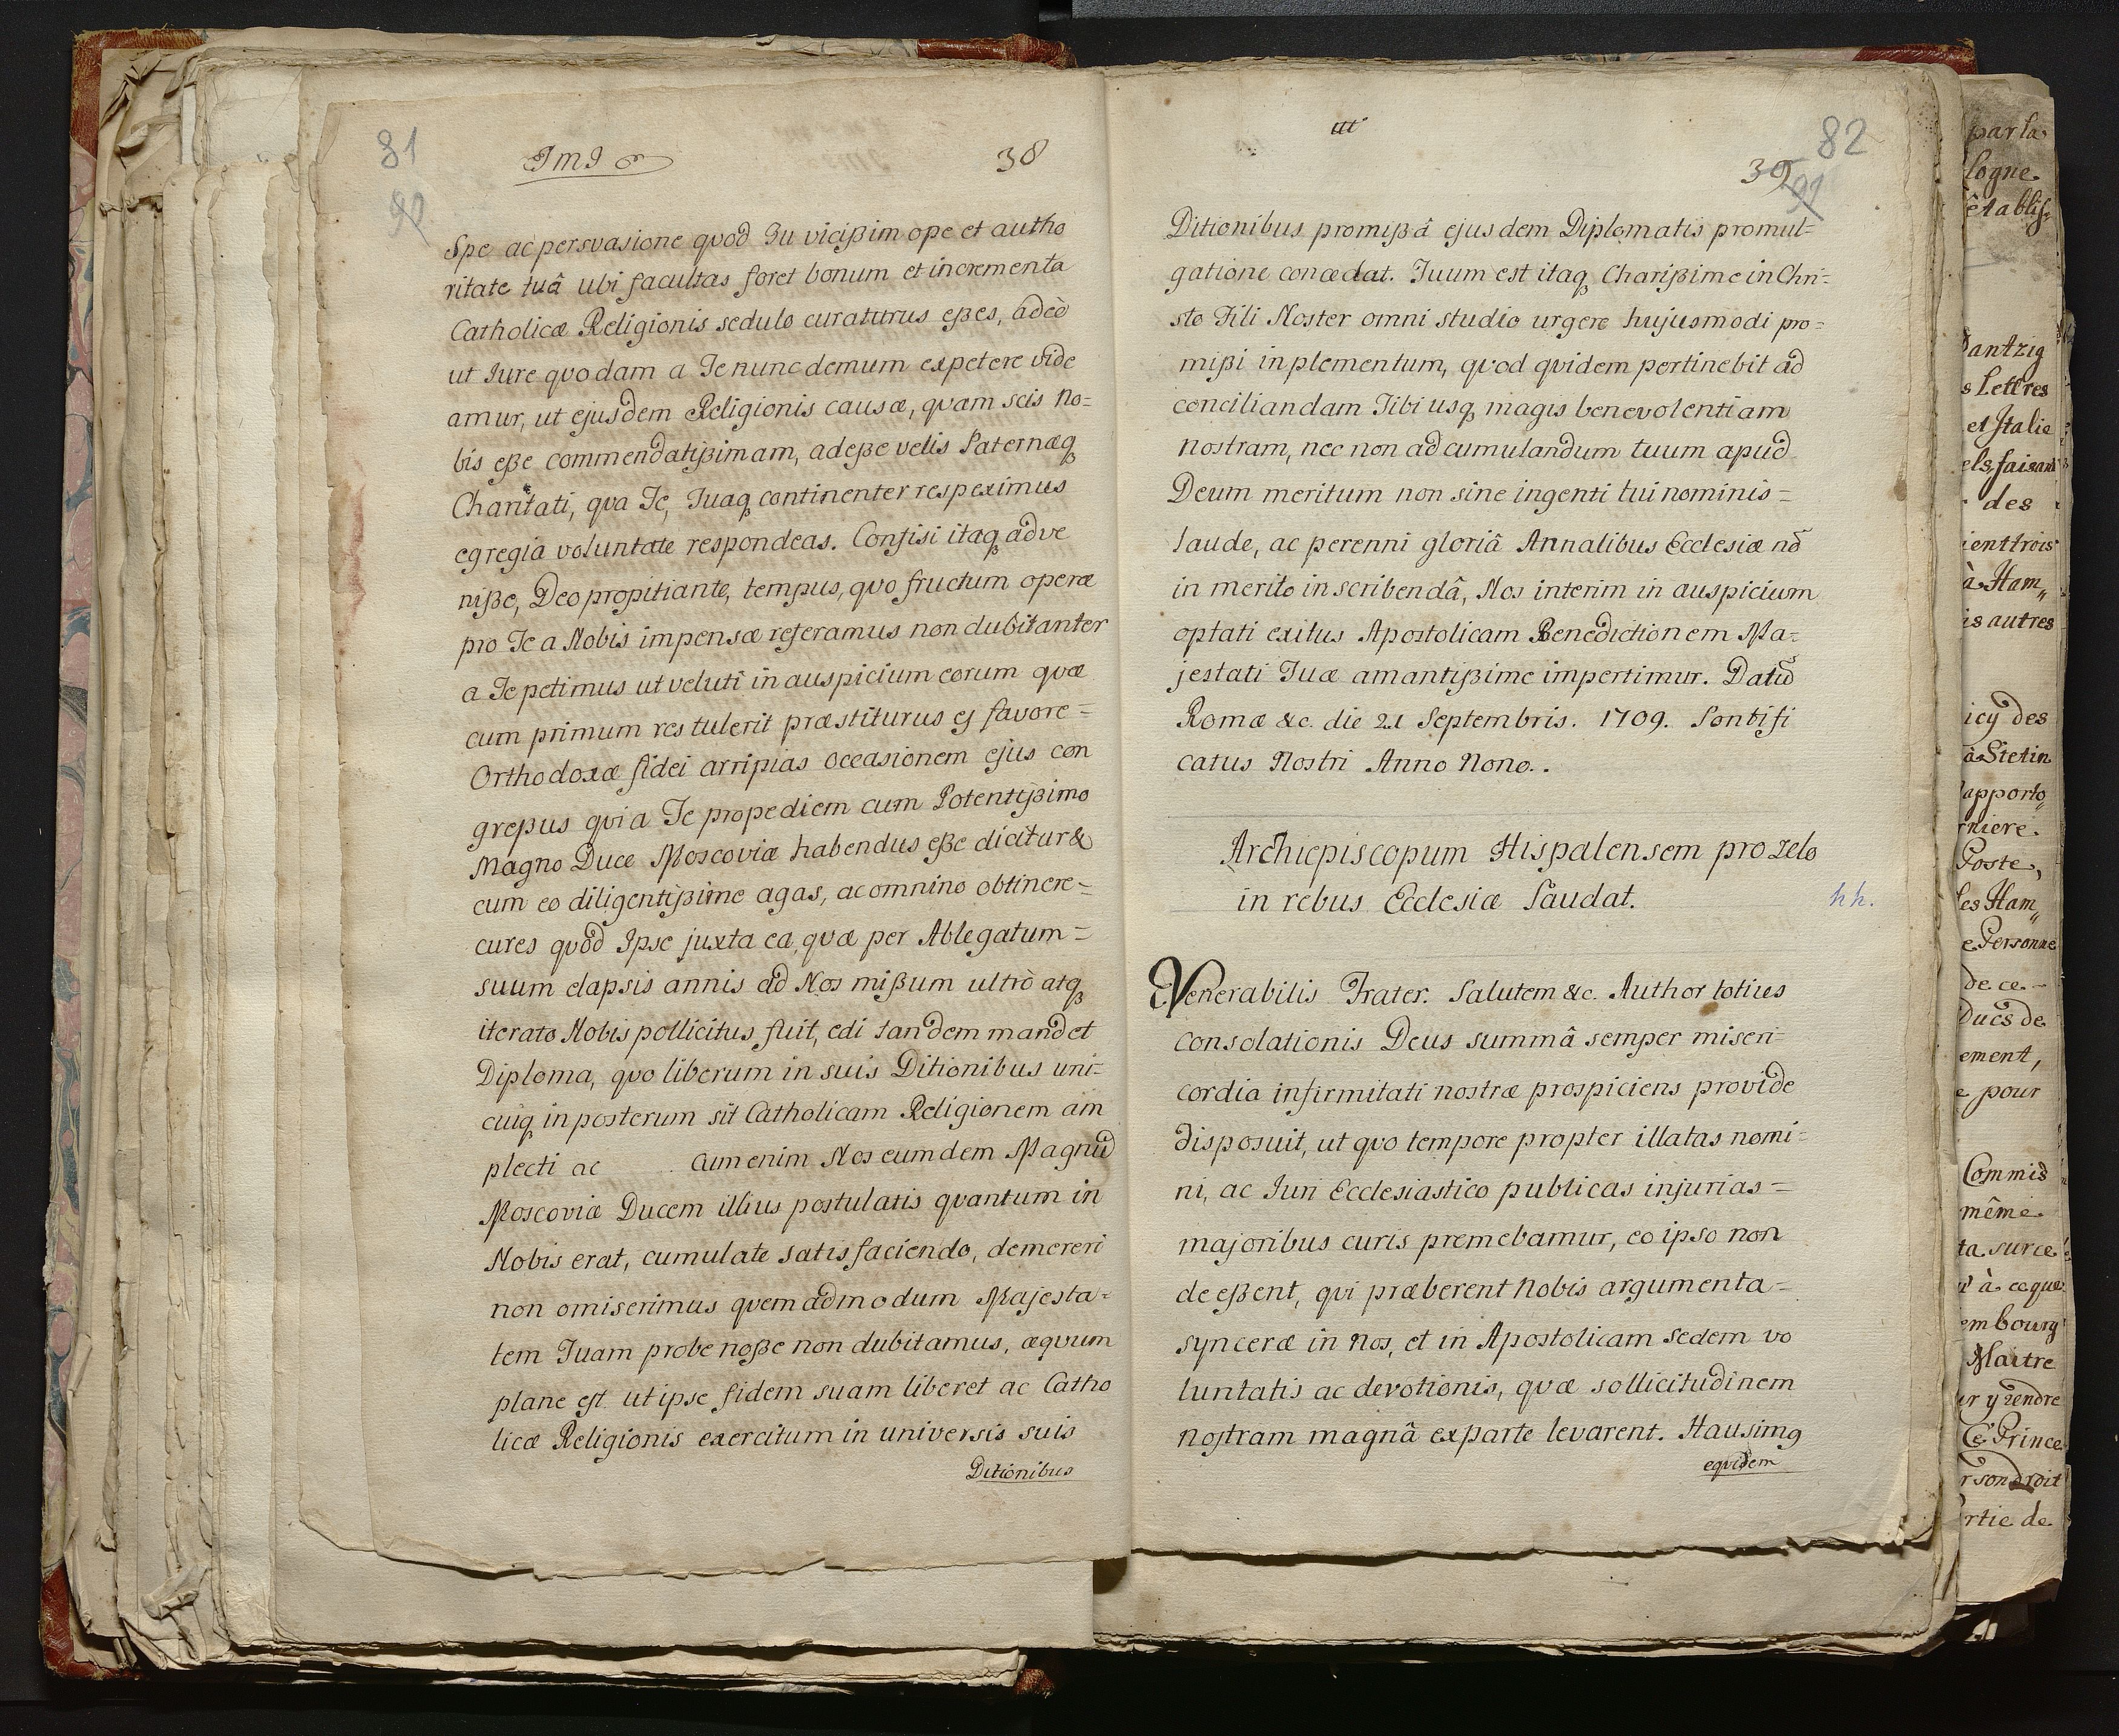 81
90
Imd
38
Spe ac persvasione qvod Tu vicißim ope et autho
ritate tuâ ubi facultas foret bonum et incrementa
Catholicæ Religionis sedulo curaturus eßes, adeò
ut Jure qvodam a Te nunc demum expetere vide
amur, ut ejusdem Religionis causæ, qvam scis No=
bis eße commendatißimam, adeße velis Paternæq
Charitati, qva Te, Tuaq continenter respeximus
egregia voluntate respondeas. Confisi itaq adve
niße, Deo propitiante, tempus, qvo fructum operæ
pro Te a Nobis impensæ referamus non dubitanter
a Te petimus ut veluti in auspicium eorum qvæ
cum primum res tulerit præstiturus es favore=
Orthodoxæ fidei arripias occasionem ejus con
greßus qvi a Te propediem cum Potentißimo
Magno Duce Moscoviæ habendus eße dicitur &
cum eo diligentißime agas, ac omnino obtinere=
cures qvod Ipse juxta ea, qvæ per Ablegatum=
suum elapsis annis ad Nos mißum ultrò atq
iterato Nobis pollicitus fuit, edi tandem mandet
Diploma, qvo liberum in suis Ditionibus uni=
cuiq in posterum sit Catholicam Religionem am
plecti ac cum enim Nos eumdem Magnū
Moscoviæ Ducem illius postulatis qvantum in
Nobis erat, cumulate satisfaciendo, demereri
non omiserimus qvemadmodum Majesta=
tem Tuam probe noße non dubitamus, æqvum
plane est ut ipse fidem suam liberet ac Catho
licæ Religionis exercitum in universis suis
Ditionibus
82
39
91
Ditionibus promißâ ejusdem Diplomatis promul=
gatione concedat. Tuum est itaq Charißime in Chri=
sto Fili Noster omni studio urgere hujusmodi pro=
mißi inplementum, qvod qvidem pertinebit ad
conciliandam Tibi usq magis benevolentiam
nostram, nec non ad cumulandum tuum apud
Deum meritum non sine ingenti tui nominis=
laude, ac perenni gloriâ Annalibus Ecclesiæ nō
in merito inscribendâ, Nos interim in auspicium
optati exitus Apostolicam Benedictionem Ma=
jestati Tuæ amantißime impertimur. Datū
Romæ &c. die 21 Septembris. 1709. Pontifi
catus Nostri Anno Nono..
Archiepiscopum Hispalensem pro zelo
in rebus Ecclesiæ Laudat.
hh.
Venerabilis Frater. Salutem &c. Author totius
consolationis Deus summâ semper miseri=
cordia infirmitati nostræ prospiciens provide
disposuit, ut qvo tempore propter illatas nomi=
ni, ac Juri Ecclesiastico publicas injurias=
majoribus curis premebamur, eo ipso non
deeßent, qvi præberent Nobis argumenta=
synceræ in Nos, et in Apostolicam Sedem vo
luntatis ac devotionis, qvæ sollicitudinem
nostram magnâ ex parte levarent. Hausimq
eqvidem
par la
logne
établis=
Dantzig
s Lettres
et Italie
els, faisant
des
ient trois
à Ham,,
is autres
icy des
à Stetin
apporto,,
rniere.
Poste,
les Ham,,
e Personne
de ce-
Ducs de
ement,
e pour
Commis
même
ta surce
à ce que
embourg
Maitre
er y rendre
Ce Prince
r son droit
rtie de